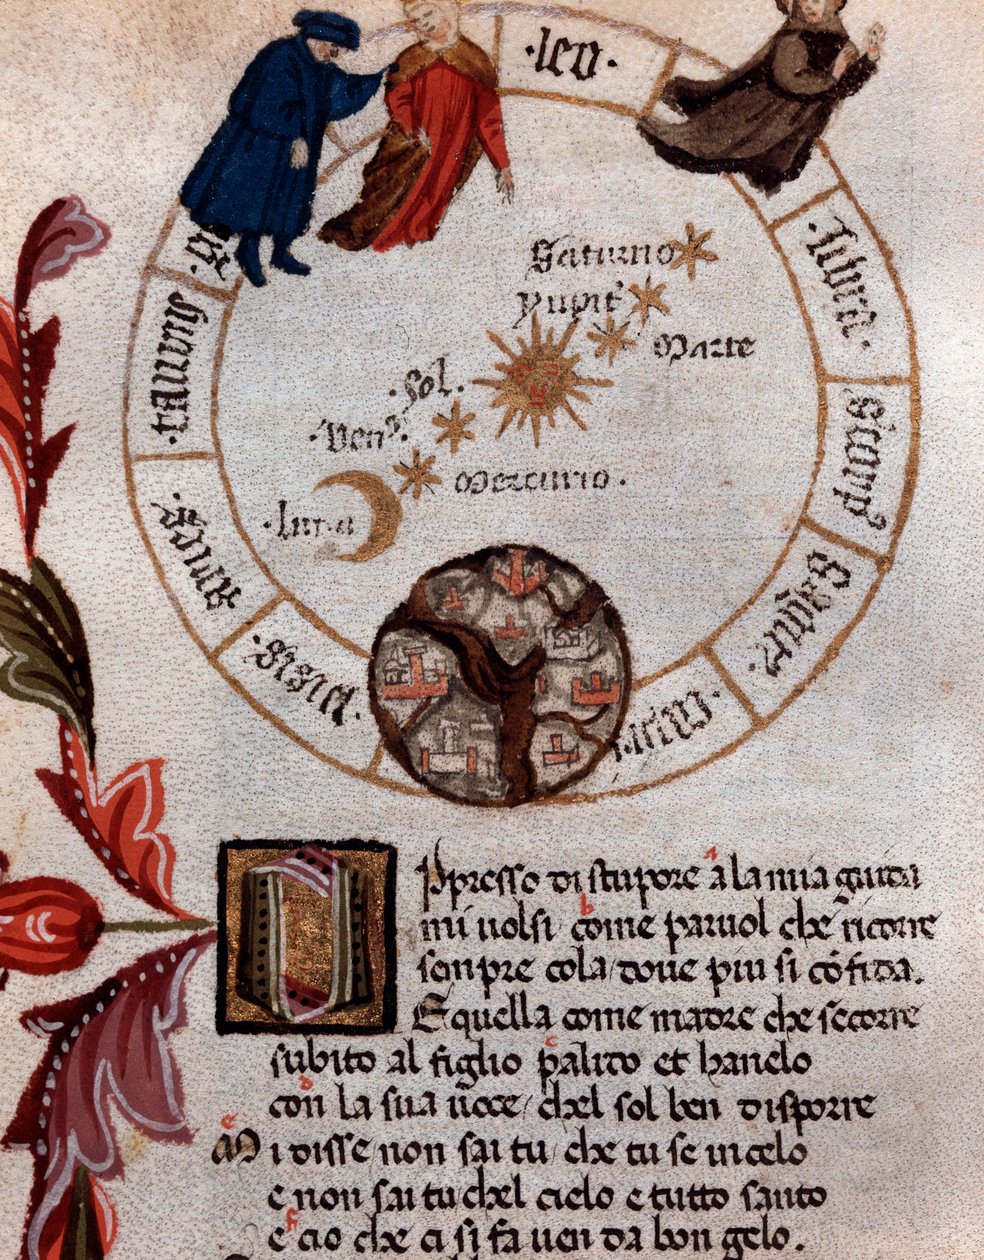 ·leo·
·libra·
·taurus·
·aries·
Saturno
Marte
·sol·
·Vens·
Mercurio·
·luna
·piscis·
Oppresso di stupore a la mia guida
mi uolsi come paruol che ricorre
senpre cola doue piu si cōfida.
E quella come madre che secorre
subito al figlio palito et hanelo
con la sua uoce chel sol ben disporre
Mi disse non sai tu che tu se in celo
e non sai tu chel cielo e tutto santo
e cio che ci si fa uen da bon gelo.